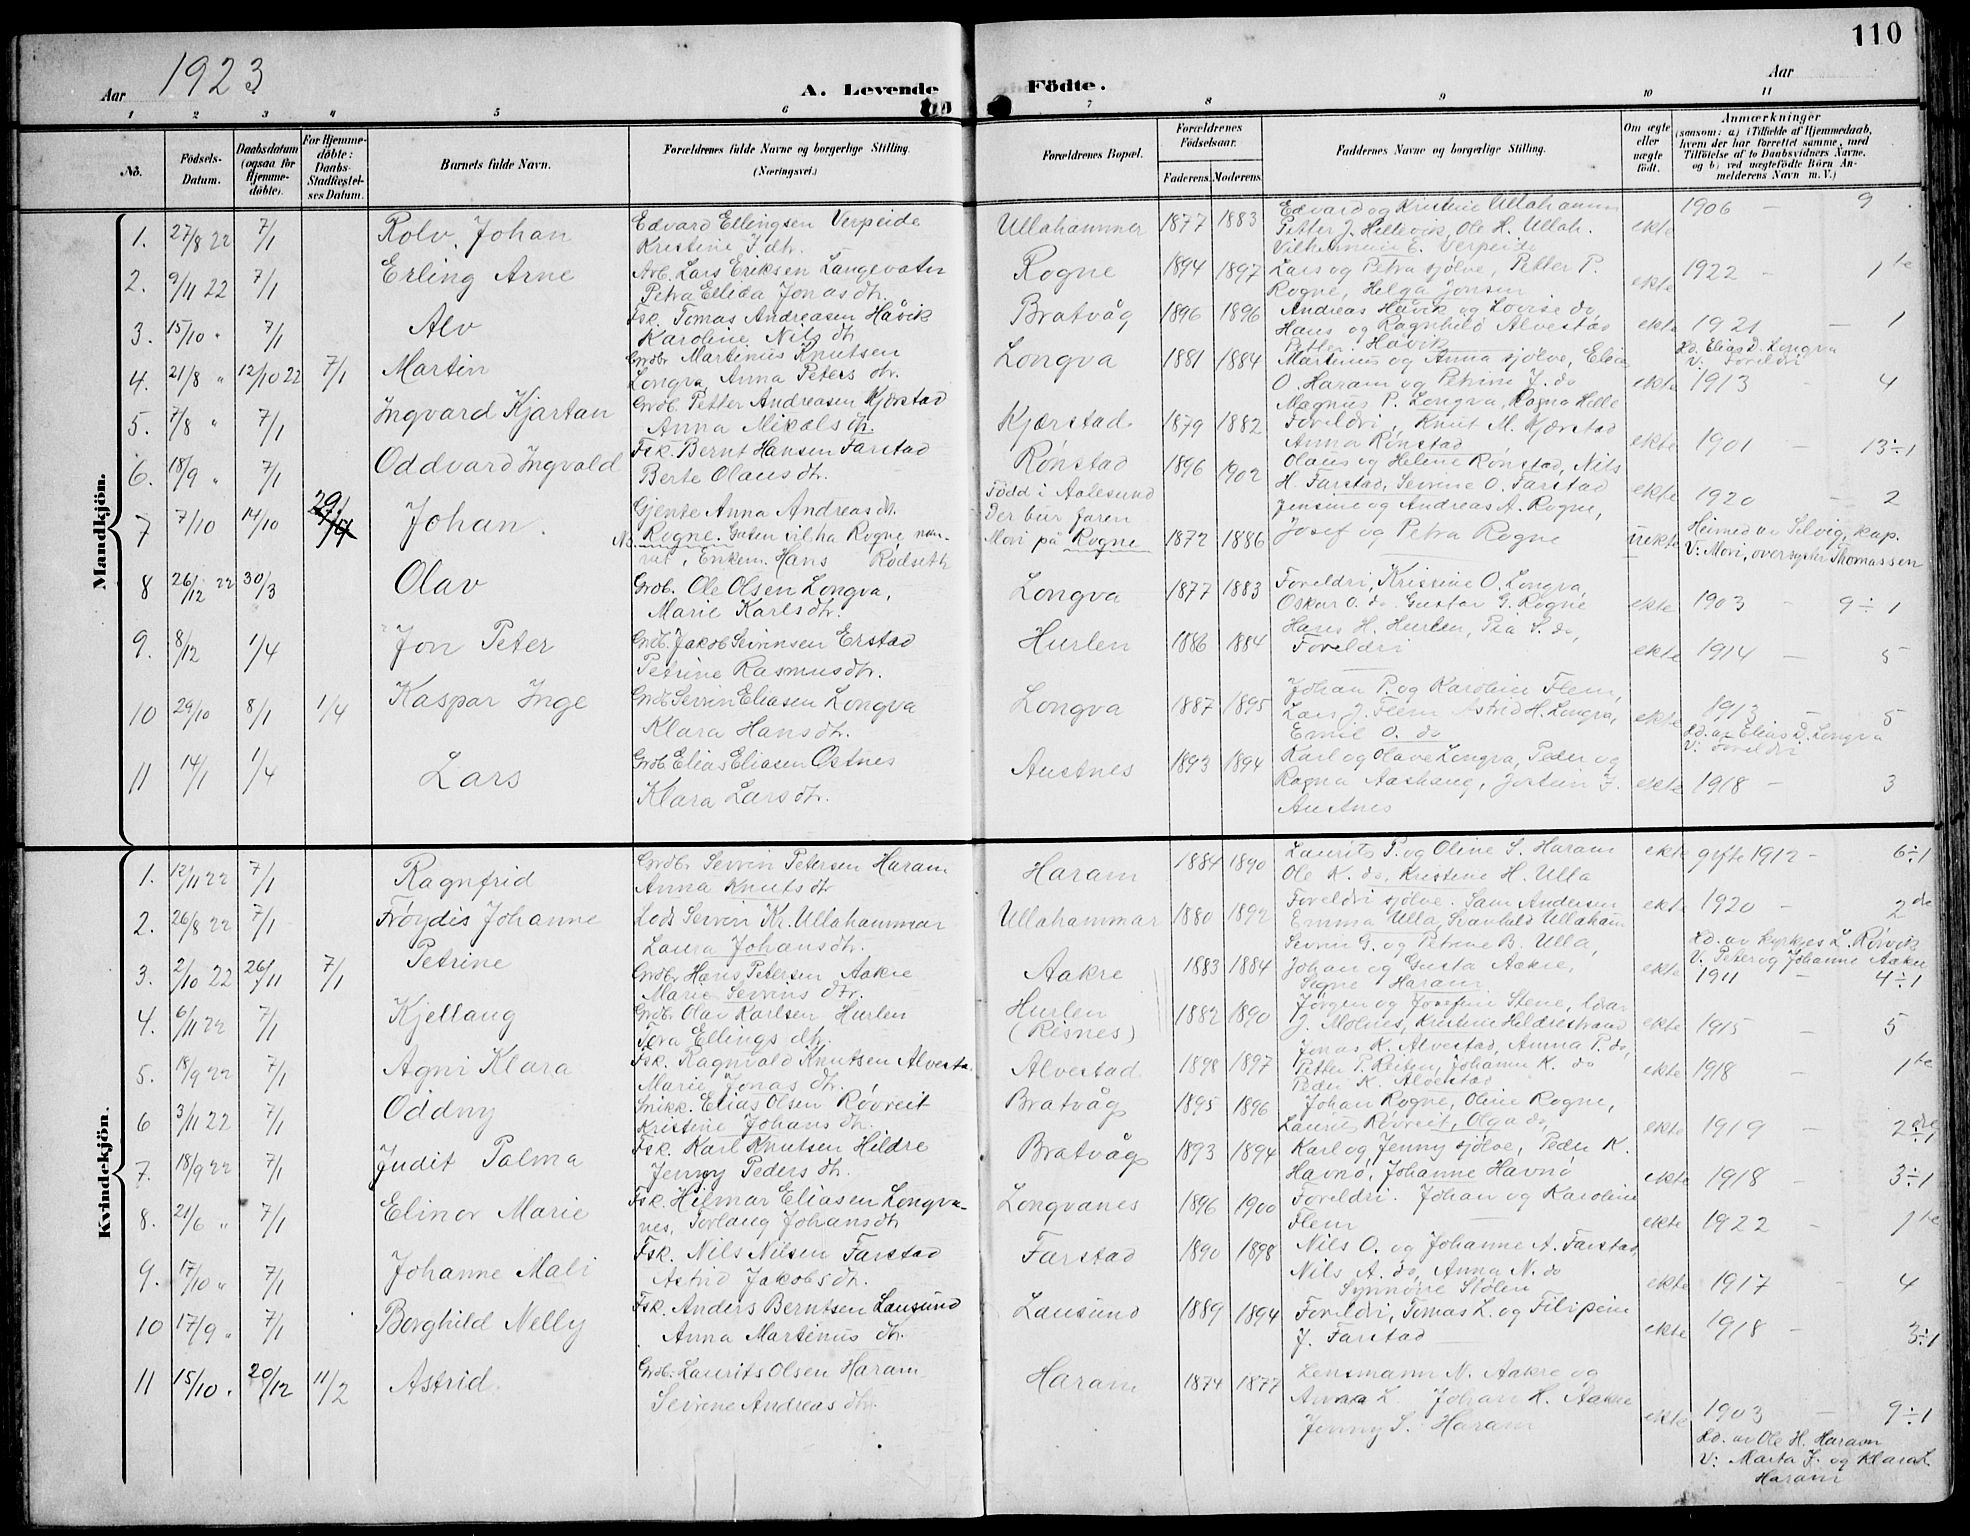 110
Aar 1923
A. Levende
Födte.
Aar
1 2 3 4 5 6 7 8 9 10 11
No.
Födsels-Datum.
Daabsdatum (ogsaa for Hjemme-döbte).
For Hjemme-döbte: Daabs-Stadfæstel-ses Datum.
Barnets fulde Navn.
Forældrenes fulde Navne og borgerlige Stilling. (Næringsvei.)
Forældrenes Bopæl.
Forældrenes Födselsaar.
Faderens. Moderens.
Faddernes Navne og borgerlige Stilling.
Om ægte eller uægte födt.
Anmærkninger (saasom: a) i Tilfælde af Hjemmedaab, hvem der har forrettet samme, med Tilföielse af to Daabsvidners Navne, og b) ved uægtefödte Börn An-melderens Navn m. V.)
Mandkjön.
1. 27/8 22 7/1 Rolv Johan Edvard Ellingsen Verpeide Ullahammer 1877 1883 Edvard og Kristine Ullahamm 1906 - 9
Kristine J. dtr. Petter J. Hellevik, Ole H. Ullah. ekte
Vilhelmine E. Verpeide
2. 9/11 22 7/1 Erling Arne Arb. Lars Eriksen Langevatn Rogne 1894 1897 Lars og Petra sjølve, Petter P. 1922 - 1te
Petra Ellida Jonas dtr. Rogne, Helga Jonsen ekte
3. 15/10 " 7/1 Alv Fsk. Tomas Andreasen Håvik Bratvåg 1896 1896 Andreas Håvik og Lovise do,
Karoline Nils dtr. Hans og Ragnhild Alvestad ekte 1921 - 1
Petter Håvik
4. 21/8 " 12/10 22 7/1 Martin Grdb. Martinus Knutsen Longva 1881 1884 Martinus og Anna sjølve, Elias Hd. Elias D. Longva
Longva, Anna Peters dtr. O. Haram og Petrine J. do V. Foreldri
Magnus P. Longva, Ragna Helle ekte 1913 - 4
5. 7/8 " 7/1 Ingvard Kjartan Grdb. Petter Andreasen Kjærstad Kjærstad 1879 1882 Foreldri, Knut M. Kjærstad
Anna Mikals dtr. Anna Rønstad ekte 1901 - 13÷1
6. 18/9 " 7/1 Oddvard Ingvald Fsk. Bernt Hansen Farstad Rønstad 1896 1902 Olaus og Heline Rønstad, Nils
Berte Olaus dtr. H. Farstad, Sevrine O. Farstad ekte 1920 - 2
7 7/10 14/10 Johan. Gjente Anna Andreas dtr. Fødd i Aalesund Jensine og Andreas A. Rogne,
Rogne. Der bur faren
Mori på Rogne 1872 1886 Josef og Petra Rogne uekte Heimed av Selvig, kap.
Enkem. Hans Rødseth V: Mori, oversyster Thomassen
8 26/12 22 30/3 Olav Grdb. Ole Olsen Longva, Longva 1877 1883 Foreldri, Kristine O. Longva,
Marie Karls dtr. Oskar O. do. Gustav G. Rogne ekte 1903 - 9÷1
9. 8/12 1/4 Jon Peter Grdb. Jakob Sevrinsen Erstad Hurlen 1886 1884 Hans H. Hurlen, Pea S. do,
Petrine Rasmus dtr. Foreldri ekte 1914 - 5
10 29/10 8/1 1/4 Kaspar Inge Grdb. Sevrin Eliasen Longva Longva 1887 1895 Johan P. og Karoline Flem,
Klara Hans dtr. Lars J. Flem Astrid H. Longva, ekte 1913 - 5
Emil O. do Hd. av Elias D. Longva
V: Foreldri
11 14/1 1/4 Lars Grdb. Elias Eliasen Ostnes Austnes 1893 1894 Karl og Olave Longva, Peder og
Klara Lars dtr. Ragna Aashaug, Jostein J. ekte 1918 - 3
Austnes
Kvindekjön.
1. 12/11 22 7/1 Ragnfrid Grdb. Sevrin Petersen Haram Haram 1884 1890 Laurits P. og Oline S. Haram ekte gifte 1912 - 6÷1
Anna Knuts dtr. Ole K. do, Kristine H. Ulla
2. 26/8 22 7/1 Frøydis Johanne Sevrin Kr. Ullahammar Ullahammar 1880 1892 Foreldri sjølve. Sam Andersen ekte 1920 - 2de
Laura Johans dtr. Emma Ulla, Svanhild Ullaham
3. 2/10 22 26/11 7/1 Petrine Grdb. Hans Petersen Aakre Aakre 1883 1884 Sevrin G. og Petrine B. Ulla, Hd. av kyrkjes L. Rørvik
Marie Sevrins dtr. Johan og Gusta Aakre, V. Peter og Johanne Aakre
Signe Haram ekte 1911 - 4÷1
4. 6/11 22 7/1 Kjellaug Grdb. Olav Karlsen Hurlen Hurlen (Risnes) 1882 1890 Jørgen og Josefine Stene, Ivar
Tora Ellings dtr. J. Molnes, Kristine Hildrestrand ekte 1915 - 5
5. 19/9 22 7/1 Agni Klara Fsk. Ragnvald Knutsen Alvesta Alvestad 1898 1897 Jonas K. Alvestad, Anna P. do,
Marie Jonas dtr. Petter P. Reiten, Johanne K. do ekte 1918 - 1te
Peder K. Alvestad
6 3/11 22 7/1 Oddny Snikk. Elias Olsen Røvreit Bratvåg 1895 1896 Johan Rogne, Oline Rogne,
Kristine Johans dtr. Laurits Røvreit, Olga do, ekte 1919 - 2de ÷1
7. 18/9 22 7/1 Judit Palma Fsk. Karl Knutsen Hildre Bratvåg 1893 1894 Karl og Jenny sjølve, Peder K.
Jenny Peders dtr. Havnø, Johanne Havnø ekte 1918 - 3÷1
8. 21/6 " 7/1 Elinor Marie Fsk. Hilmar Eliasen Longva- Longvanes 1896 1900 Foreldri. Johan og Karoline
nes, Torlaug Johans dtr. Flem ekte 1922 - 1te
9. 17/10 " 7/1 Johanne Mali Fsk. Nils Nilsen Farstad Farstad 1890 1898 Nils O. og Johanne A. Farstad,
Astrid Jakobs dtr. Nils A. do, Anna N. do ekte 1917 - 4
Synnøve Stølen
10 17/9 " 7/1 Borghild Nelly Fsk. Anders Berntsen Lausund Lausund 1889 1894 Foreldri, Tomas L. og Filipine 1918 -
Anna Martinus dtr. J. Farstad ekte 3÷1
11 15/10 " 20/12 11/2 Astrid Grdb. Laurits Olsen Haram Haram 1874 1877 Lensmann N. Aakre og
Sevrine Andreas dtr. Anna L. Johan H. Aakre
Jenny S. Haram ekte 1903 - 9÷1
Hd. av Ole H. Haram
V: Marta J. og Klara L
Haram